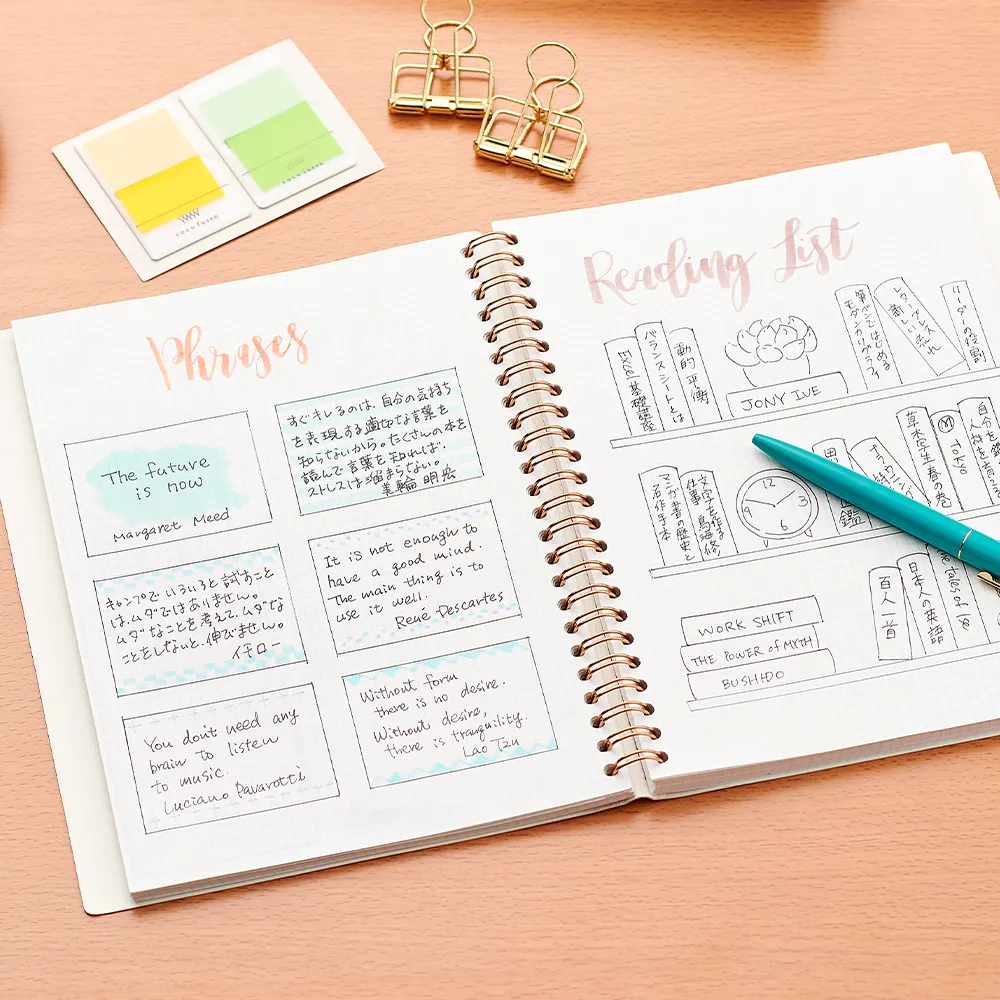 COCO fusen
COCO fusen
Phrases
The future
is now
Margaret Meed
すぐキレるのは、自分の気持ち
を表現する適切な言葉を
知らないから。たくさんの本を
読んで言葉を知れば、
ストレスは溜まらない。
美輪 明宏
キャンプでいろいろと試すこと
は、ムダではありません。
ムダなことを考えて、ムダな
ことをしないと、伸びません。
イチロー
It is not enough to
have a good mind.
The main thing is to
use it well.
René Descartes
You don't need any
brain to listen
to music.
Luciano Pavarotti
Without form
there is no desire.
Without desire,
there is tranquility.
Lao Tzu
Reading List
Excel 基礎講座
バランスシートとは
動的平衡
JONY IVE
筆ペンではじめる
モダンカリグラフィ
レタープレス
新しい流れ
リーダーの役割
マンガ・漫画の歴史と
名作手本
文字を作る
仕事 鳥海修
12
3
6
9
図鑑
草木写生春の巻
Tokyo
自分を鍛
人材を育
WORK SHIFT
THE POWER of MYTH
BUSHIDO
百人一首
日本人の英語
The tales of